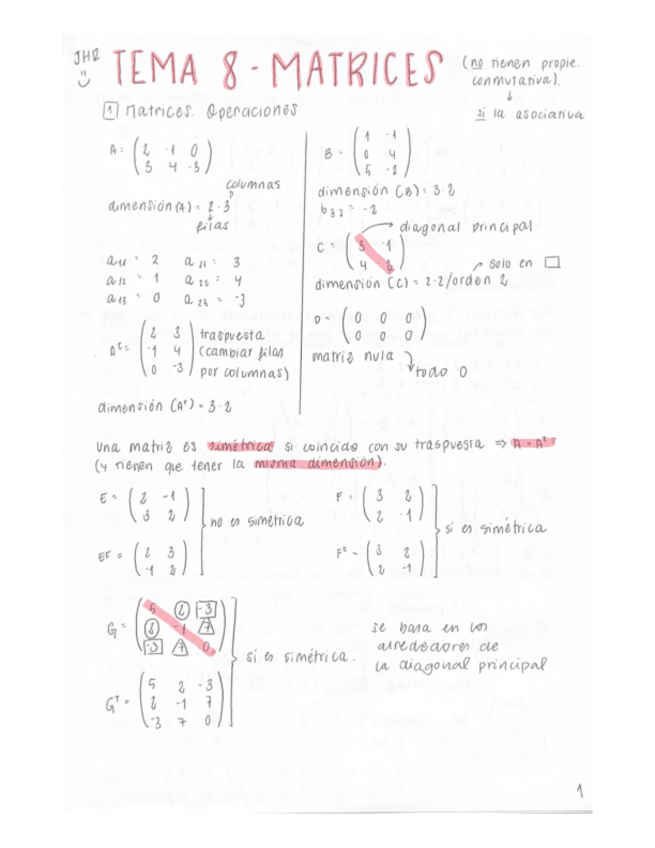 JHR
TEMA 8 - MATRICES
(no tienen propie.
conmutativa).
↓
si la asociativa
1 Matrices. Operaciones
A = (2 -1 0
3 4 -3)
columnas
dimensión (A) = 2·3
filas
a11 = 2 a21 = 3
a12 = 1 a22 = 4
a13 = 0 a23 = -3
At = (2 3
-1 4
0 -3)
traspuesta
(cambiar filas
por columnas)
dimensión (At) = 3·2
B = (1 -1
0 4
5 -2)
dimensión (B) = 3·2
b32 = -2
diagonal principal
C = (3 -1
4 2)
solo en □
dimensión (C) = 2·2/orden 2
D = (0 0 0
0 0 0)
matriz nula
todo 0
Una matriz es simétrica si coincide con su traspuesta ⇒ A = At
(y tienen que tener la misma dimensión).
E = (2 -1
3 2)
no es simétrica
Et = (2 3
-1 2)
F = (3 2
2 -1)
si es simétrica
Ft = (3 2
2 -1)
G = (5 2 -3
2 -1 7
-3 7 0)
si es simétrica.
Gt = (5 2 -3
2 -1 7
-3 7 0)
se basa en los
alrededores de
la diagonal principal
1